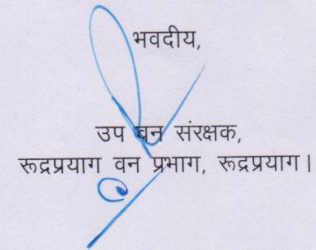 भवदीय,
उप वन संरक्षक,
रूद्रप्रयाग वन प्रभाग, रूद्रप्रयाग।